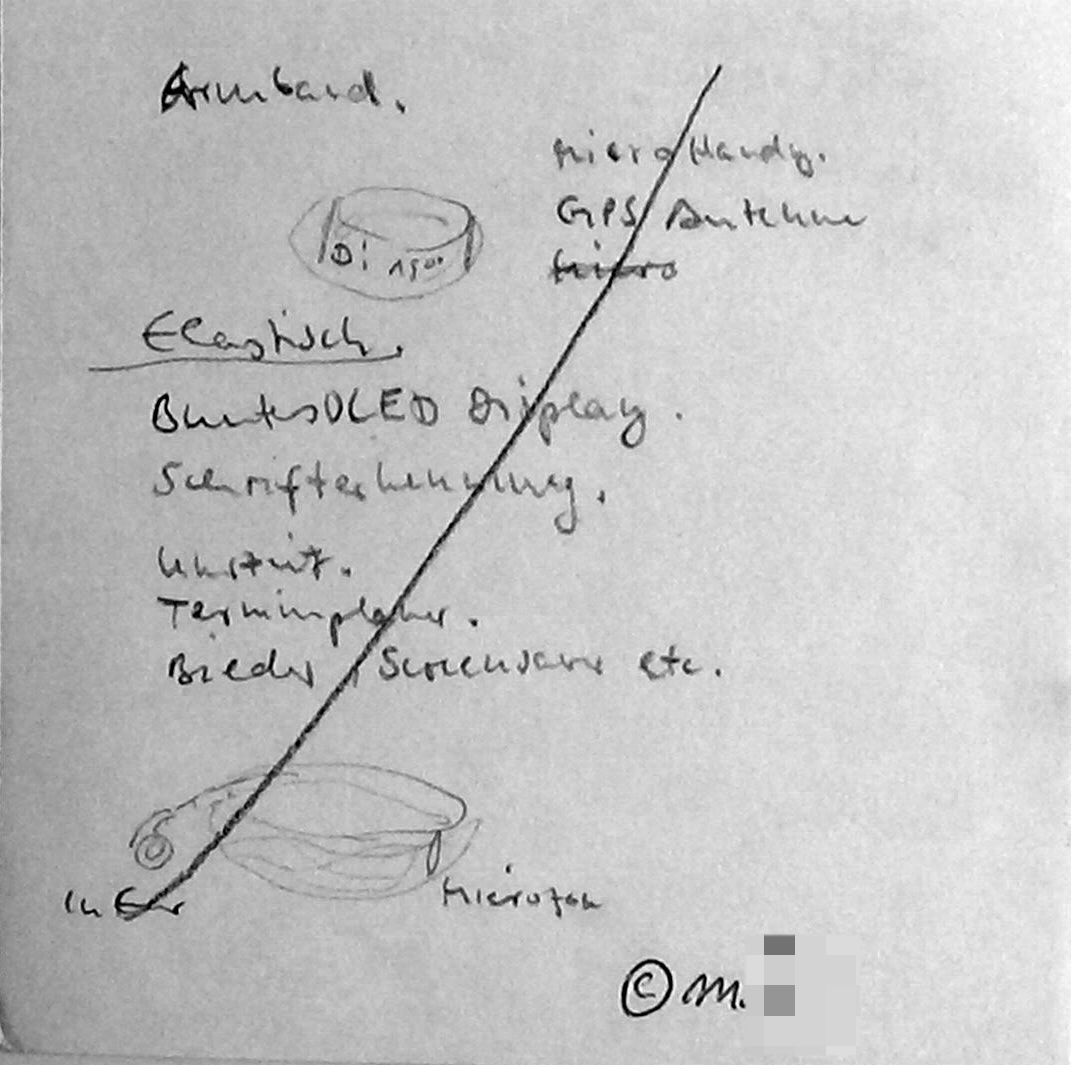 Armband.
Micro Handy.
GPS Antenne
Micro
Di 15⁰⁰
Elastisch.
Buntes OLED Display.
Schrifterkennung.
Uhrzeit.
Terminplaner.
Bilder, Screensaver etc.
In Ear
Microfon
© M.